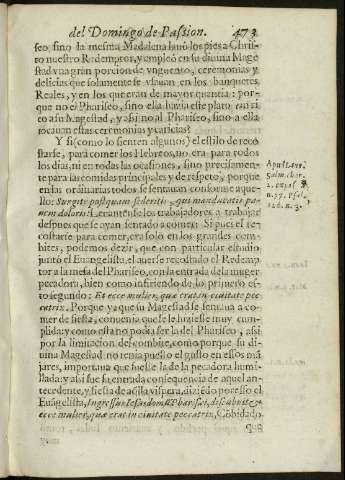 del Domingo de Passion. 473
seo, sino la mesma Madalena lauò los pies a Chris-
to nuestro Redemptor, y empleò en su diuina Mage
stad vna gran porcion de vnguento, ceremonias y
delicias que solamente se vsauan en los banquetes
Reales, y en los que eran de mayor quentia: por-
que no el Phariseo, sino ella hazia este plato tan ri
co a su Magestad, y assi no al Phariseo, sino a ella
tocauan estas ceremonias y caricias?
Y si (como lo sienten algunos) el estilo de reco
starse, para comer los Hebreos, no era para todos
los dias, ni en todas las ocasiones, sino precisamen-
te para las comidas principales y de respeto, porque
en las ordinarias todos se sentauan conforme aque-
llo: Surgite postquam sederitis, qui manducatis pa-
nem doloris: Leuantense los trabajadores a trabajar
despues que se ayan sentado a comer: Si pues el re-
costarse para comer, era solo en los grandes com-
bites, podemos dezir, que con particular estudio,
juntò el Euangelista, el auerse recostado el Redemp
tor a la mesa del Phariseo, con la entrada de la muger
pecadora, bien como infiriendo de lo primero es-
to segundo: Et ecce mulier, quæ erat in ciuitate pec-
catrix. Porque ya que su Magestad se sentaua a co-
mer de fiesta, conuenia que se le hiziesse muy cum-
plida: y como esta no podia ser la del Phariseo, assi
por la limitacion del combite, como porque su di-
uina Magestad no tenia puesto el gusto en essos mã
jares, importaua que fuesse la de la pecadora humi-
llada: y assi fue su entrada consequencia de aquel an-
tecedente, y fiesta de aquella vispera, diziēdo por esso el
Euangelista, Ingressus Iesus domū Pharisæi, discubuit: &
ecce mulier, quæ erat in ciuitate peccatrix, Cōbidado
que
Apud
2.